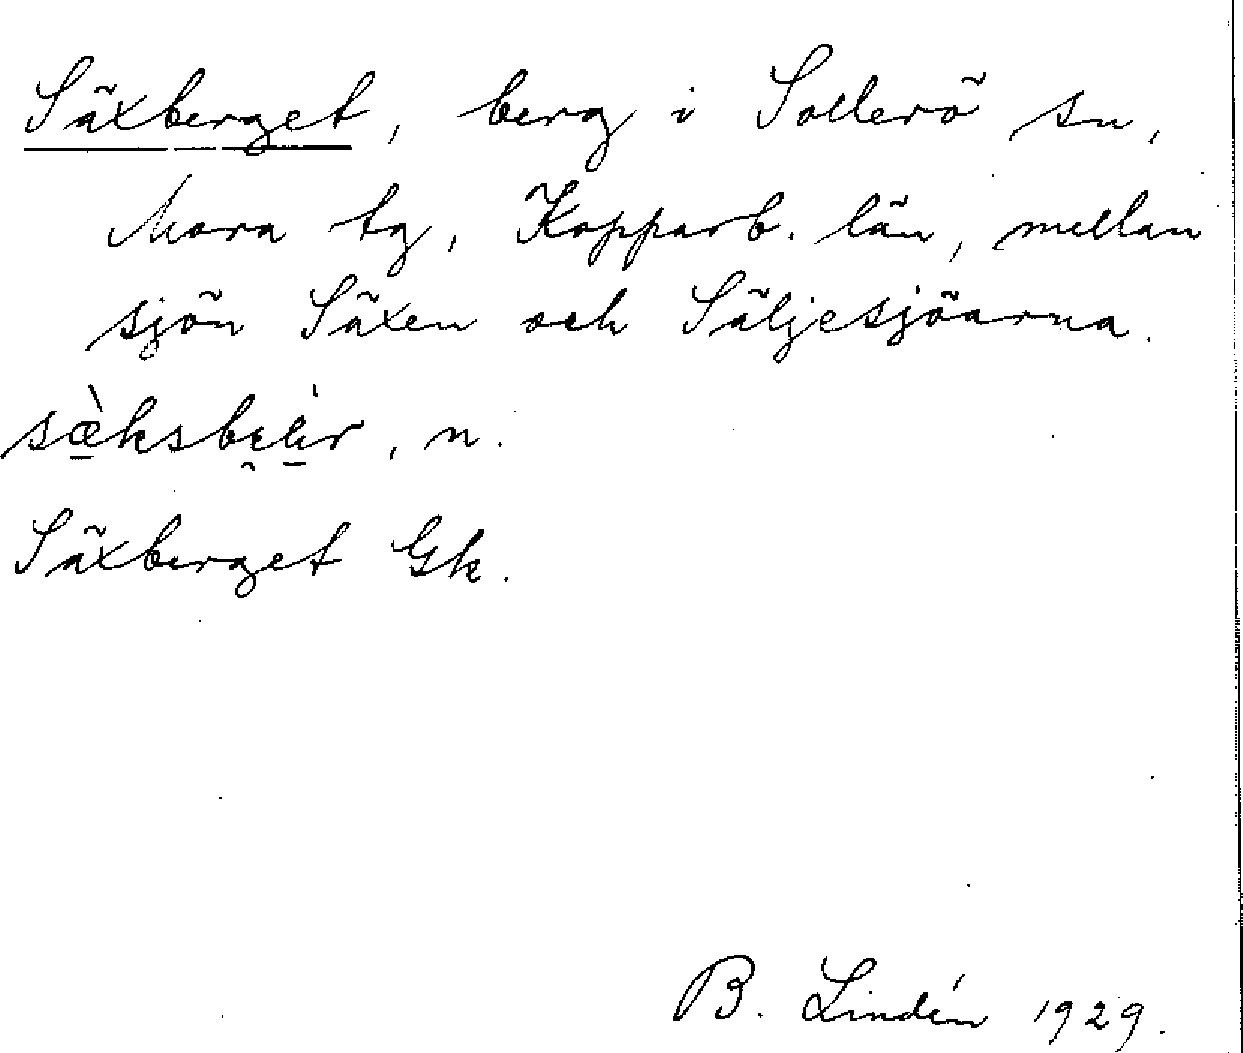 Säxberget, berg i Sollerö sn,
Mora tg, Kopparb. län, mellan
sjön Säxen och Säljesjöarna.
n.
Säxberget Gk.
B. Lindén 1929.